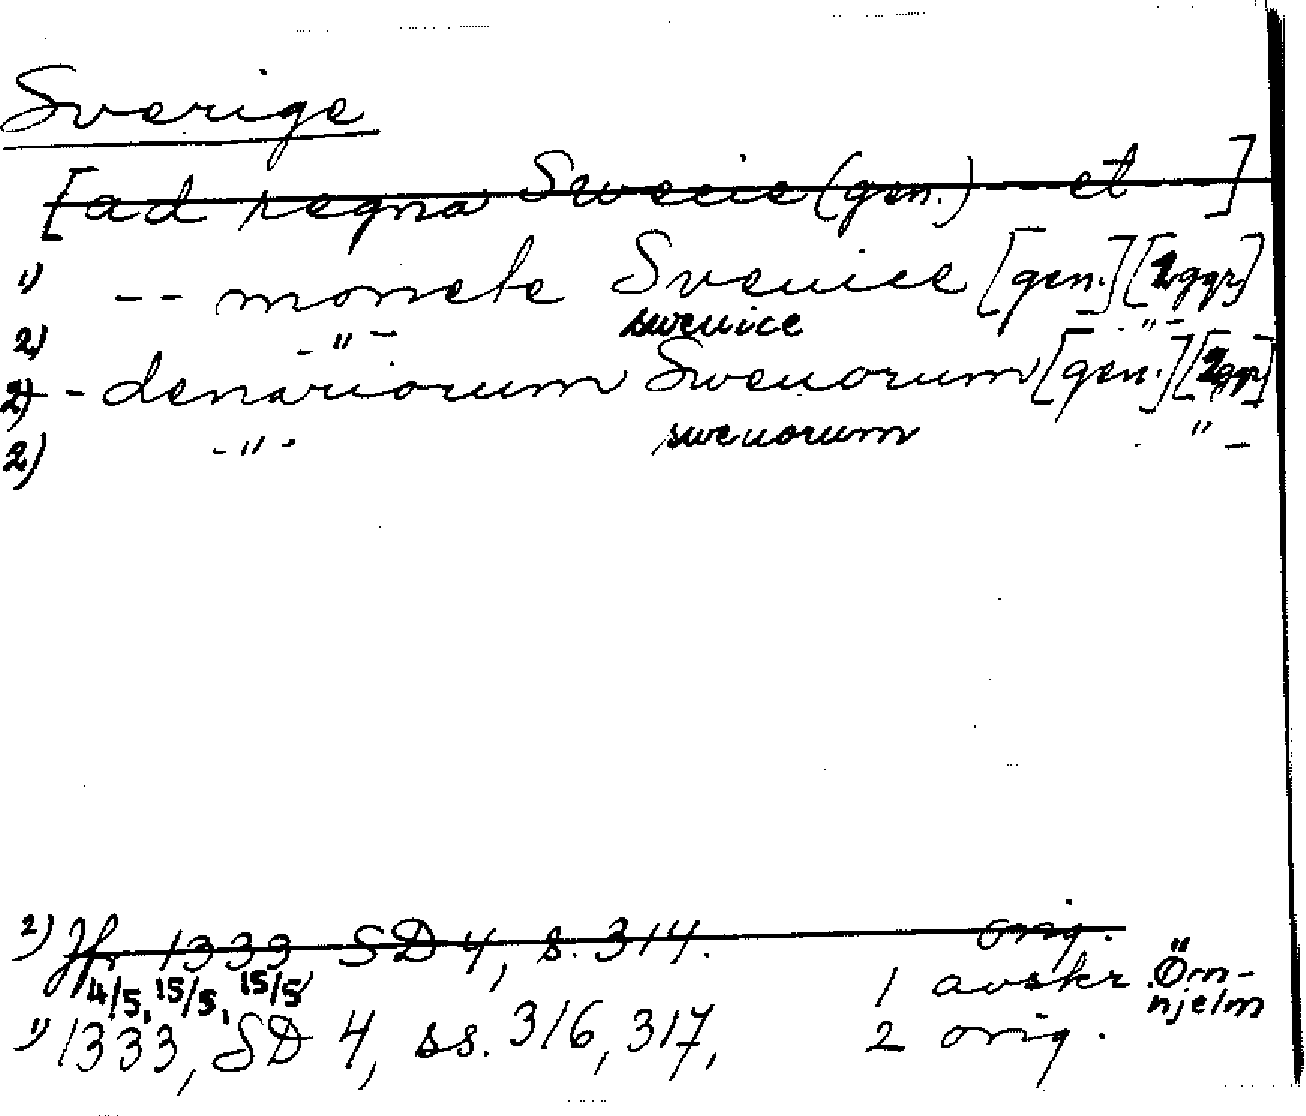 Sverige
[ad regna Swecie (gen.) - et - ]
1) -- monete Sveuice [gen.] [2ggr]
2) - " - sweuice - " -
2) - denariorum Sweuorum [gen.] [2ggr]
2) - " - sweuorum - " -
2) Jfr 1333 SD 4, s. 314. orig.
4/5, 15/5, 15/5 1 avskr. Örn-
hjelm
1) 1333, SD 4, ss. 316, 317, 2 orig.